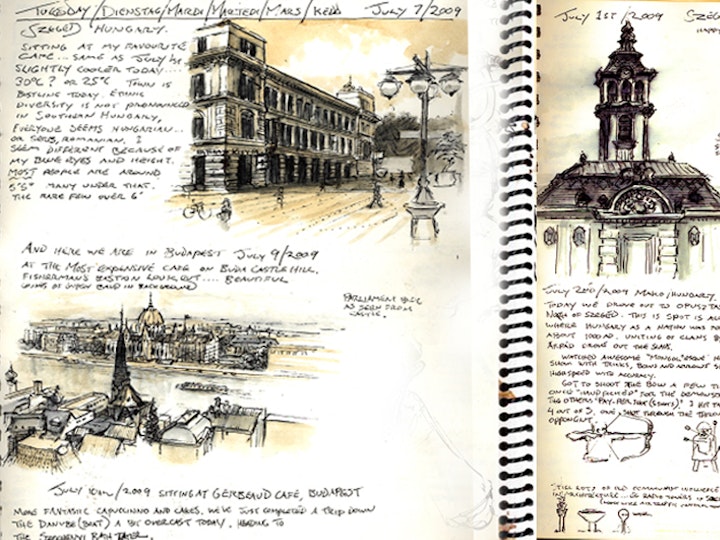 TUESDAY/DIENSTAG/MARDI/MARTEDI/MARS/KEDD JULY 7/2009
SZEGED HUNGARY.
SITTING AT MY FAVOURITE
CAFE... SAME AS JULY 1st.
SLIGHTLY COOLER TODAY....
30°C? OR 25°C TOWN IS
BUSTLING TODAY. ETHNIC
DIVERSITY IS NOT PRONOUNCED
IN SOUTHERN HUNGARY,
EVERYONE SEEMS HUNGARIAN...
OR SERB, ROMANIAN. I
SEEM DIFFERENT BECAUSE OF
MY BLUE EYES AND HEIGHT.
MOST PEOPLE ARE AROUND
5'8" MANY UNDER THAT.
THE RARE FEW OVER 6'
AND HERE WE ARE IN BUDAPEST JULY 9/2009
AT THE MOST EXPENSIVE CAFE ON BUDA CASTLE HILL,
FISHERMAN'S BASTION LOOK OUT.... BEAUTIFUL
GYPSY BAND IN BACKGROUND
PARLIAMENT
AS SEEN FROM
CASTLE.
JULY 10th/2009 SITTING AT GERBEAUD CAFÉ, BUDAPEST
MORE FANTASTIC CAPUCCINO AND CAKES. WE'VE JUST COMPLETED A TRIP DOWN
THE DANUBE (BOAT) A BIT OVERCAST TODAY. HEADING TO
THE SZECHENYI BATH LATER.
JULY 1ST/2009 SZEG
HAPPY
JULY 2ND/2009 MAKO/HUNGARY.
TODAY WE DROVE OUT TO OPUSZTA
NORTH OF SZEGED. THIS IS SPOT IS AL
WHERE HUNGARY AS A NATION WAS
ABOUT 1000 AD. UNITING OF CLANS B
ARPAD DROVE OUT THE SLAVS.
WATCHED AWESOME "MONGOL'ESQUE"
SHOW WITH TRICKS, BOWS AND ARROWS
HIGHSPEED WITH ACCURACY.
GOT TO SHOOT THE BOW A FEW T
ONCE "HANDPICKED" FOR THE DEMONST
THE OTHERS "PAY-PER SHOT (5 SHOTS)" I HIT
4 OUT OF 5, ONE SHOT THROUGH THE
OPPONENT
STILL LOTS OF OLD COMMUNIST INFLUENCE
IN ARCHITECTURE... RADIO TOWERS